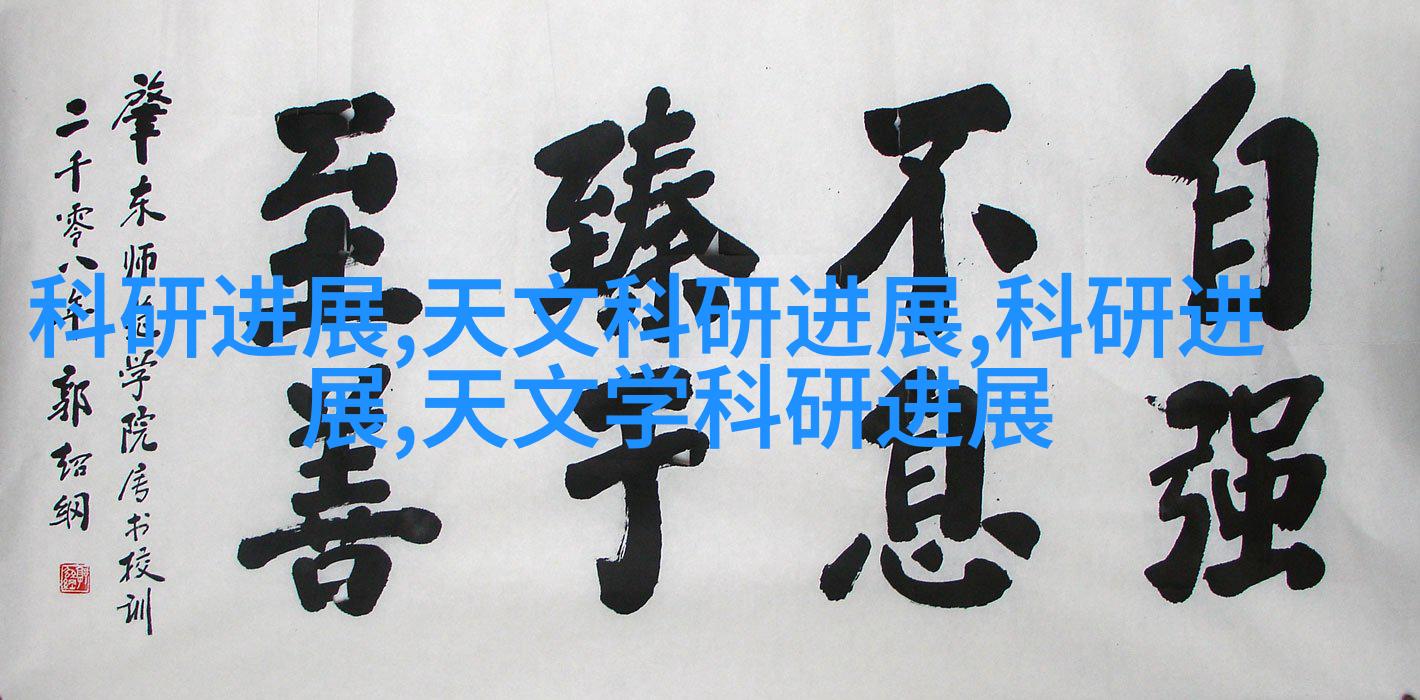 自强
不息
臻于
至善
肇东师范学院书校训
二千零八年 郭绍纲
科研进展,天文科研进展,科研进
展,天文学科研进展